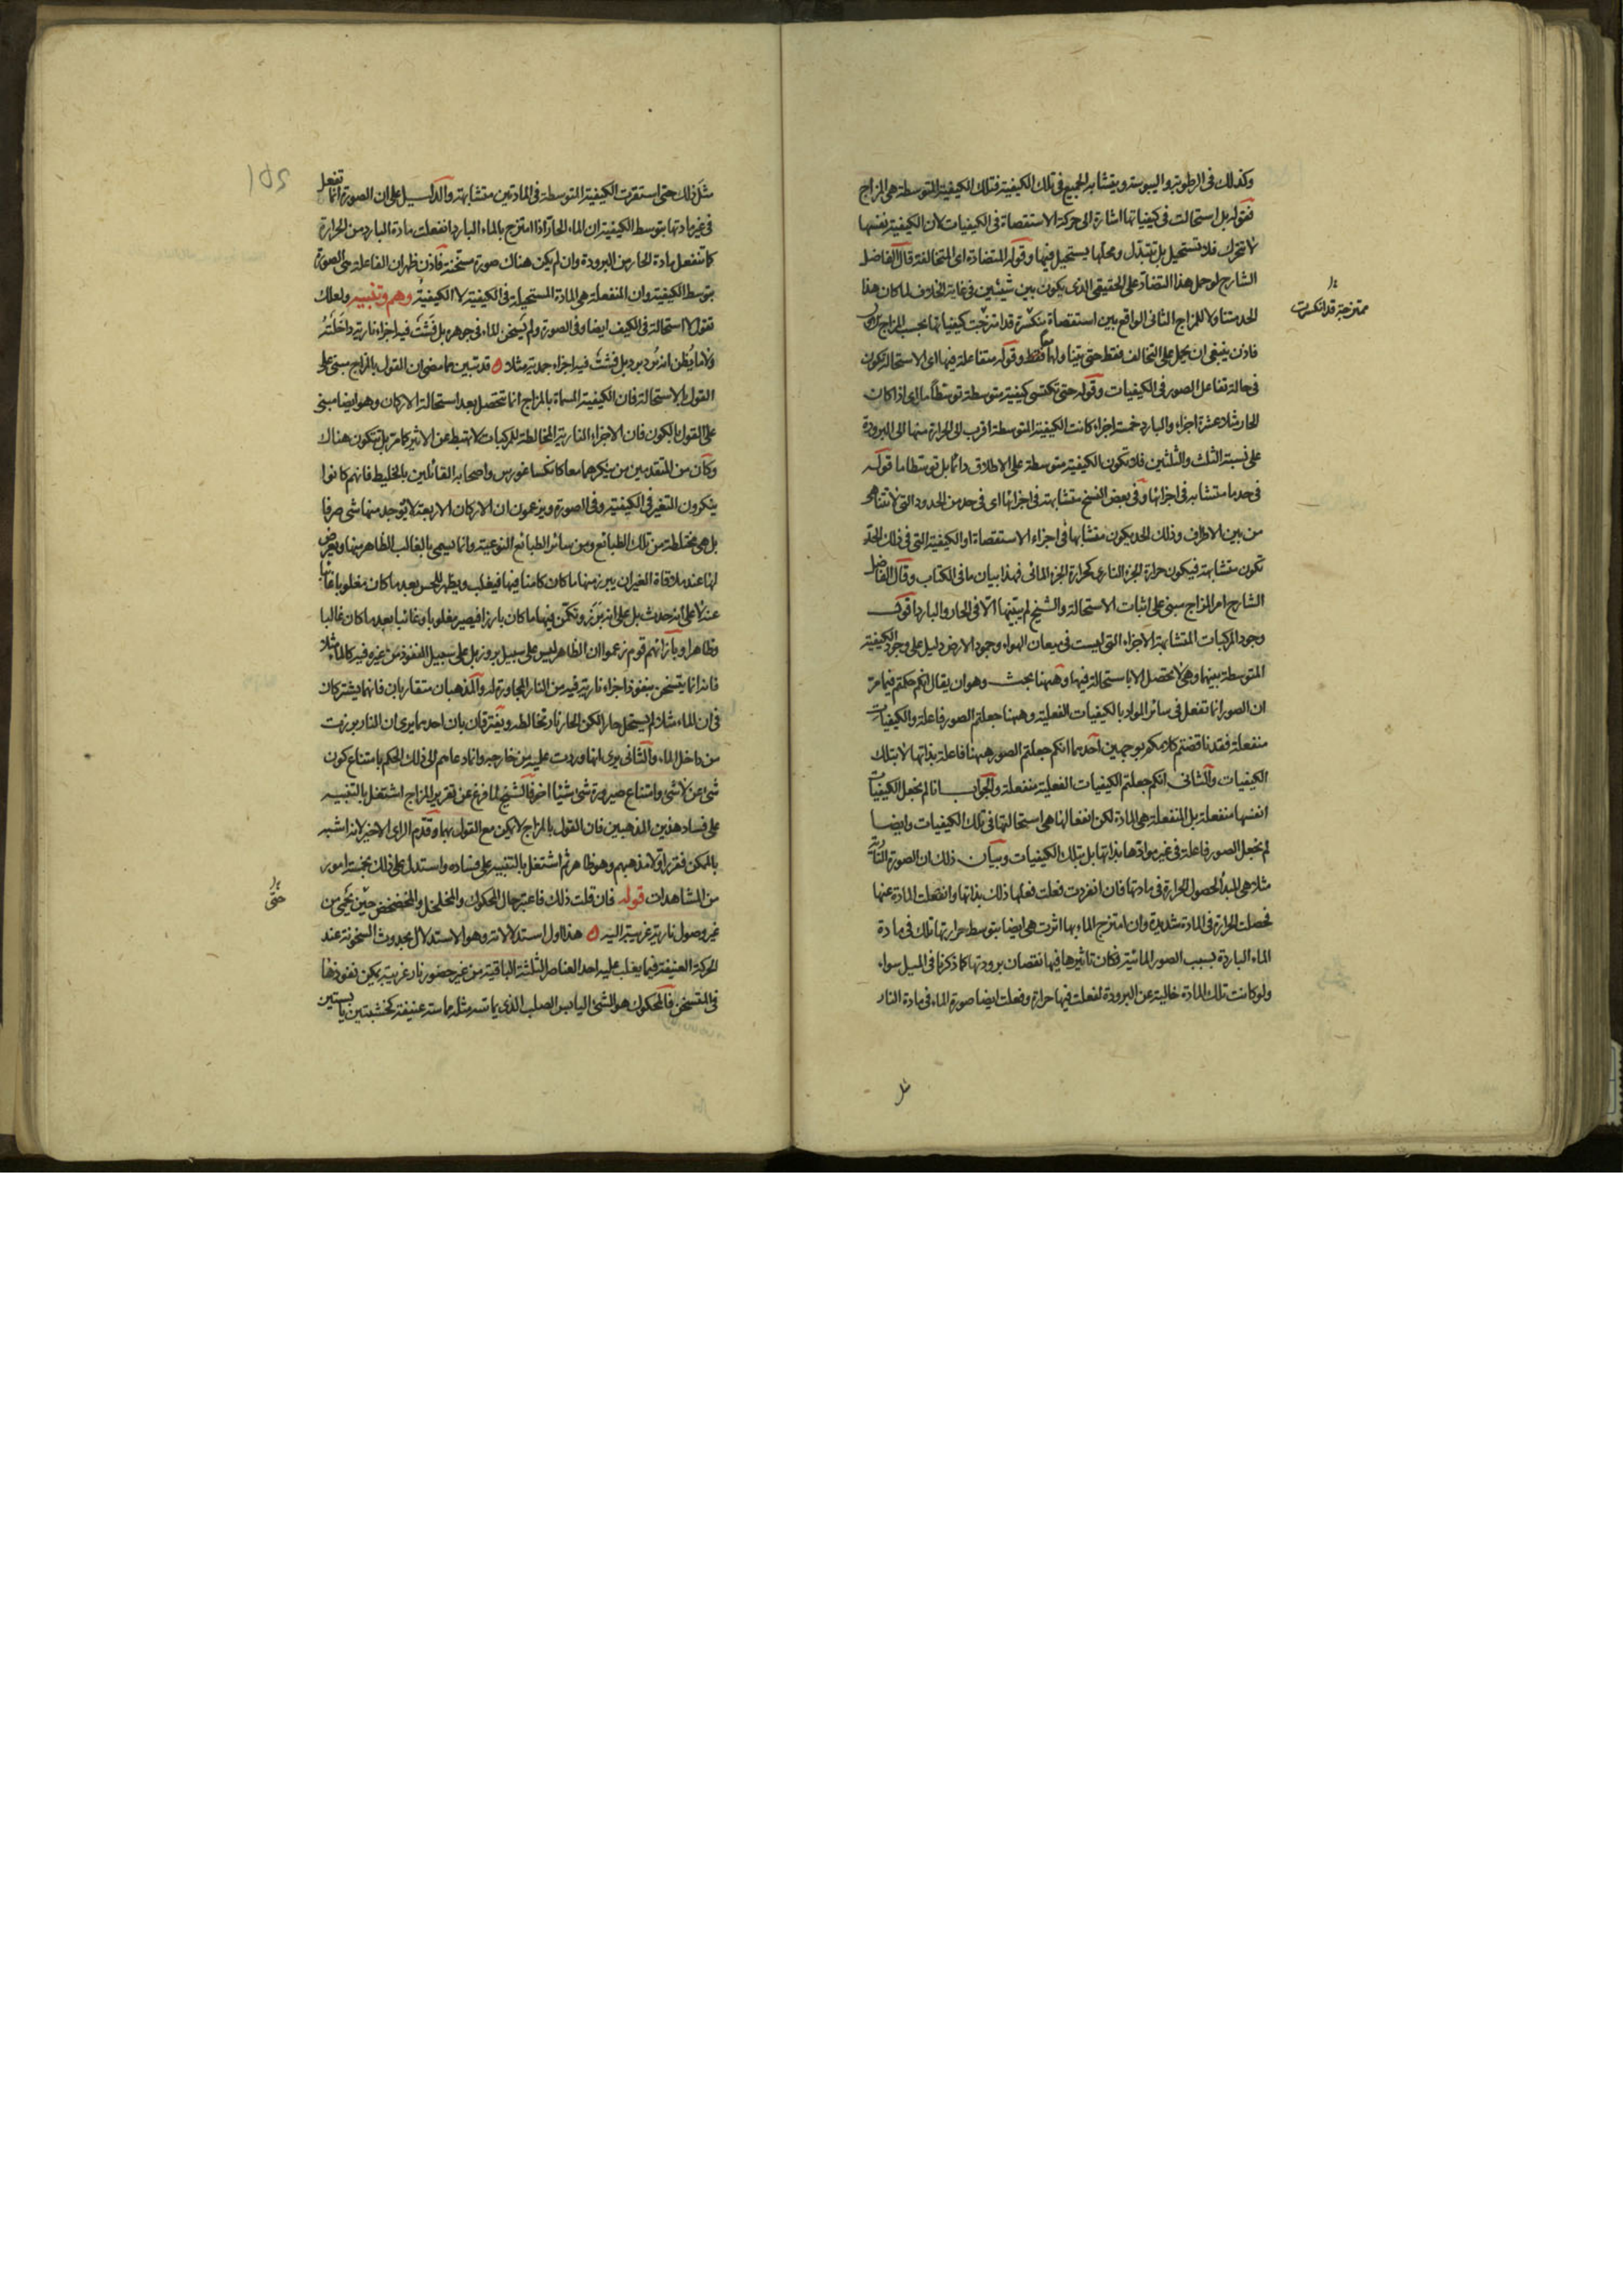 وكذلك فى الرطوبة واليبوسة ويتشابه الجميع فى تلك الكيفية فتلك الكيفية المتوسطة هى المزاج
فقوله بل استحالت فى كيفياتها اشارة الى حركة الاستقصاة فى الكيفيات لان الكيفية نفسها
لا تتحرك فلا تستحيل بل تتبدل ومحلها يستحيل فيها وقوله المتضادة اى المتخالفة قال الفاضل
الشارح لو حمل هذا التضاد على الحقيقى الذى يكون بين شيئين فى غاية الخلاف لما كان هذا
الحد متناولا للمزاج الثانى الواقع بين استقصاة منكسرة قد امتزجت كيفياتها بحسب المزاج الاول
فاذن ينبغى ان يحمل على التخالف فقط حتى يتناولهما فقط وقوله متفاعلة فيها اى الاستحالة تكون
فى حالة تفاعل الصور فى الكيفيات وقوله حتى تكتسى كيفية متوسطة توسطا ما اى اذا كان
الحار مثلا عشرة اجزاء والبارد خمسة اجزاء كانت الكيفية المتوسطة اقرب الى الحرارة منها الى البرودة
على نسبة الثلث والثلثين فلا تكون الكيفية متوسطة على الاطلاق دائما بل توسطا ما قوله
فى حد ما متشابه فى اجزائها وفى بعض النسخ متشابهة فى اجزائها اى فى حد من الحدود التى لا تتناهى
من بين الاطراف وذلك الحد يكون متشابها فى اجزاء الاستقصاة او الكيفية التى فى ذلك الحد
تكون متشابهة فيكون حرارة الجزء النارى كحرارة الجزء المائى فهذا بيان ما فى الكتاب وقال الفاضل
الشارح امر المزاج مبنى على اثبات الاستحالة والشيخ لم يبينها الا فى الحار والبارد اقول
وجود المركبات المتشابهة الاجزاء التى ليست فى ميعان الهواء وجمود الارض دليل على وجود الكيفية
المتوسطة بينها وهى لا تحصل الا باستحالة فيها وههنا بحث وهو ان يقال انكم حكمتم فيما مر
ان الصور انما تفعل فى سائر المواد بالكيفيات الفعلية وههنا جعلتم الصور فاعلة والكيفيات
منفعلة فقد ناقضتم كلامكم بوجهين احدهما انكم جعلتم الصور ههنا فاعلة بذاتها لا بتلك
الكيفيات والثانى انكم جعلتم الكيفيات الفعلية منفعلة والجواب انا لم نجعل الكيفيات
انفسها منفعلة بل المنفعلة هى المادة لكن انفعالنا هى استحالتها فى تلك الكيفيات وايضا
لم نجعل الصور فاعلة فى غير موادها بذاتها بل بتلك الكيفيات وبيان ذلك ان الصورة النارية
مثلا هى المبدأ لحصول الحرارة فى مادتها فان انفردت فعلت فعلها ذلك بذاتها وانفعلت المادة عنها
فحصلت الحرارة فى المادة شديدة وان امتزج الماء بها اثرت هى ايضا بتوسط حرارتها تلك فى مادة
الماء الباردة بسبب الصور المائية فكان تاثيرها فيها نقصان برودتها كما ذكرنا فى الميل سواء
ولو كانت تلك المادة خالية عن البرودة لفعلت فيها حرارة وفعلت ايضا صورة الماء فى مادة النار
ممتزجة قد انكسرت
مثل
مثل ذلك حتى استقرت الكيفية المتوسطة فى المادتين متشابهة والدليل على ان الصورة انما تفعل
فى غير مادتها بتوسط الكيفية ان الماء الحار اذا امتزج بالماء البارد انفعلت مادة البارد من الحرارة
كما تنفعل مادة الحار من البرودة وان لم يكن هناك صورة مسخنة فاذن ظهر ان الفاعلة هى الصورة
بتوسط الكيفية وان المنفعلة هى المادة المستحيلة فى الكيفية لا الكيفية وهم وتنبيه ولعلك
تقول لا استحالة فى الكيف ايضا وفى الصورة ولم يسخن الماء فى جوهره بل فشت فيه اجزاء نارية داخلته
ولا ما يظن انه برد برد بل فشت فيه اجزاء جمدية مثلا ه قد تبين مما مضى ان القول بالمزاج مبنى على
القول بالاستحالة فان الكيفية المسماة بالمزاج انما تحصل بعد استحالة الاركان وهو ايضا مبنى
على القول بالكون فان الاجزاء النارية المخالطة للمركبات لا تهبط عن الاثير كما مر بل تتكون هناك
وكان من المتقدمين من ينكرهما معا كانكساغورس واصحابه القائلين بالخليط فانهم كانوا
ينكرون التغير فى الكيفية وفى الصورة ويزعمون ان الاركان الاربعة لا يوجد منها شى صرفا
بل هى مختلطة من تلك الطبائع ومن سائر الطبائع النوعية وانما يسمى بالغالب الظاهر منها ويعرض
لها عند ملاقاة الغير ان يبرز منها ما كان كامنا فيها فيغلب ويظهر للحس بعد ما كان مغلوبا غائبا
عنه لا على انه حدث بل على انه برز وتكمن فيها ما كان بارزا فيصير مغلوبا وغائبا بعد ما كان غالبا
وظاهرا وبازائهم قوم زعموا ان الظاهر ليس على سبيل بروز بل على سبيل النفوذ من غيره فيه كالماء مثلا
فانه انما يتسخن بنفوذ اجزاء نارية فيه من النار المجاورة له والمذهبان متقاربان فانهما يشتركان
فى ان الماء مثلا لم يستحل حارا لكن الحار نار تخالطه ويفترقان بان احدهما يرى ان النار برزت
من داخل الماء والثانى يرى انها وردت عليه من خارجه وانما دعاهم الى ذلك الحكم بامتناع كون
شى عن لا شى وامتناع صيرورة شى شيئا اخر فالشيخ لما فرغ عن تقرير المزاج اشتغل بالتنبيه
على فساد هذين المذهبين فان القول بالمزاج لا يمكن مع القول بهما وقدم الراى الاخير لانه اشبه
بالممكن فقرر اولا مذهبهم وهو ظاهر ثم اشتغل بالتنبيه على فساده واستدل على ذلك بخمسة امور
من المشاهدات قوله فان قلت ذلك فاعتبر حال المحكوك والمخلخل والمخضخض حين يحمى من
غير وصول نارية غريبة اليه ه هذا اول استدلالاته وهو الاستدلال بحدوث السخونة عند
الحركة العنيفة فيما يغلب عليه احد العناصر الثلثة الباقية من غير حضور نار غريبة يمكن نفوذها
فى المتسخن فالمحكوك هو الشى اليابس الصلب الذى يماسه مثله مماسة عنيفة كخشبتين يابستين
حتى